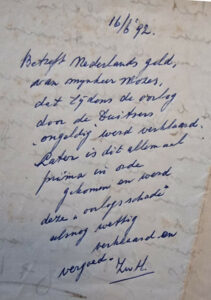 16/6 '92.
Betreft Nederlands geld,
van mynheer Mozes,
dat tydens de oorlog
door de Duitsers
"ongeldig werd verklaard.
Later is dit allemaal
prima in orde
gekomen en werd
deze "oorlogsschade"
alsnog wettig
verklaard en
vergoed.